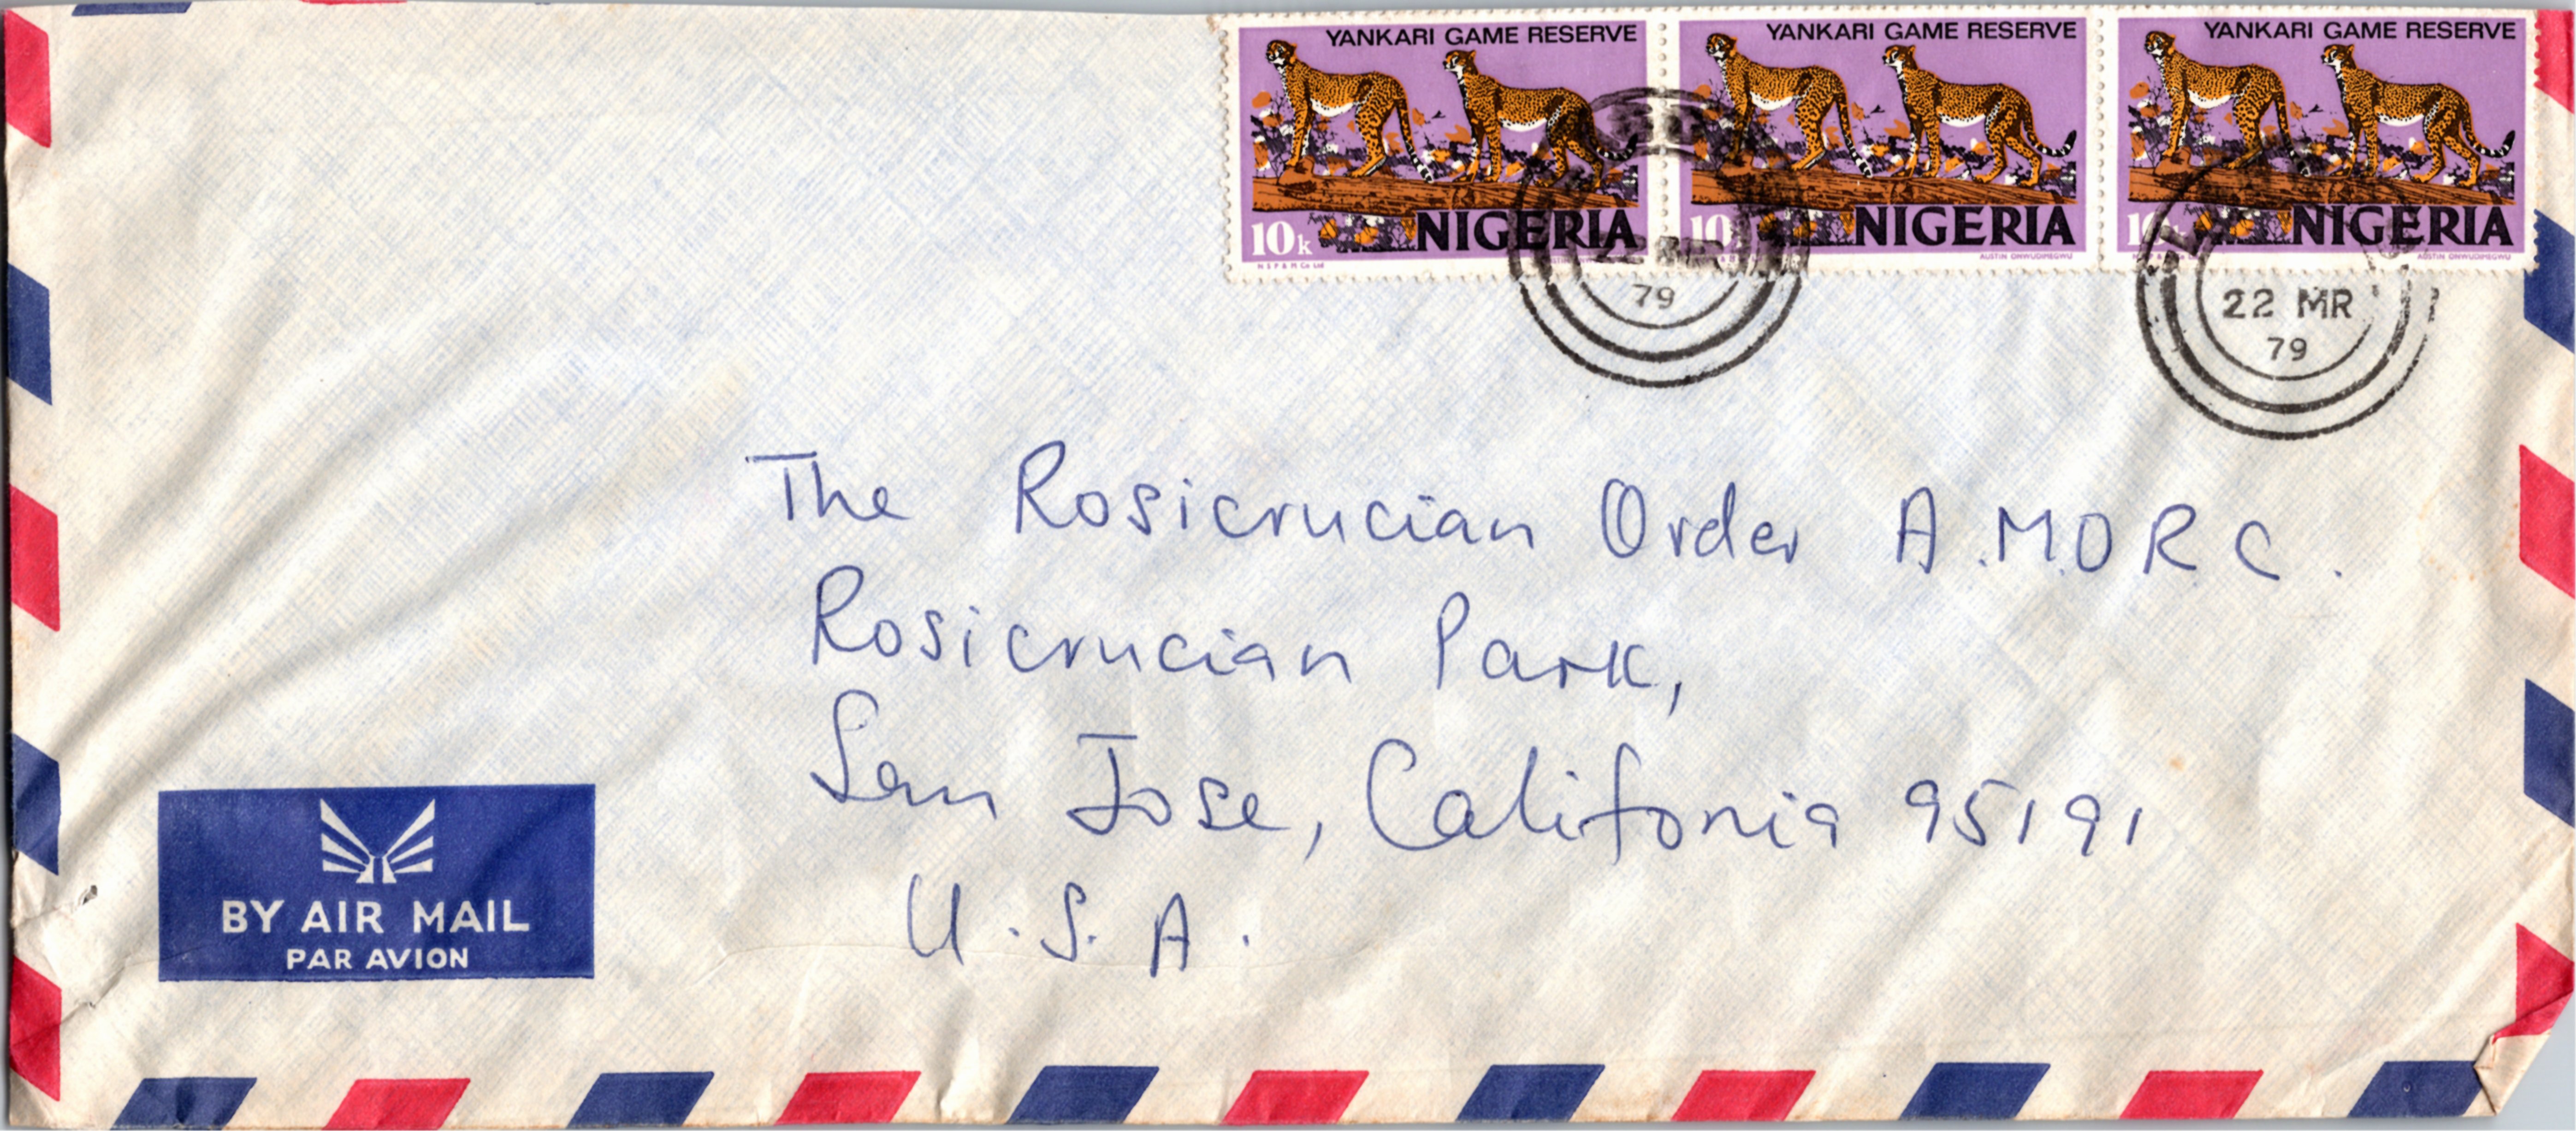 YANKARI GAME RESERVE
10k NIGERIA
N S P & M Co Ltd
YANKARI GAME RESERVE
10 NIGERIA
AUSTIN ONWUDIMEGWU
YANKARI GAME RESERVE
10k NIGERIA
AUSTIN ONWUDIMEGWU
79
22 MR
79
The Rosicrucian Order A.M.O.R.C.
Rosicrucian Park,
San Jose, Califonia 95191
U.S.A.
BY AIR MAIL
PAR AVION